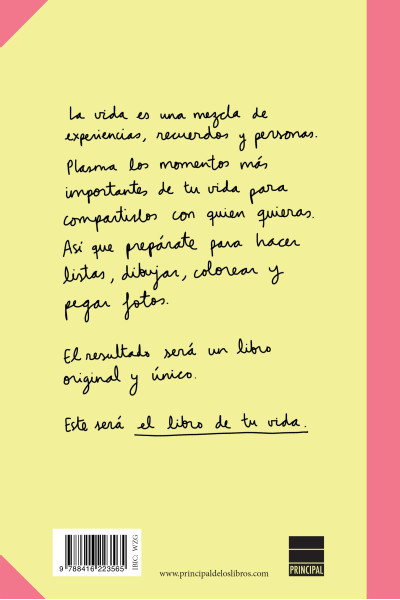 La vida es una mezcla de
experiencias, recuerdos y personas.
Plasma los momentos más
importantes de tu vida para
compartirlos con quien quieras.
Así que prepárate para hacer
listas, dibujar, colorear y
pegar fotos.
El resultado será un libro
original y único.
Este será el libro de tu vida.
IBIC: WZG
9 788416 223565
www.principaldeloslibros.com
PRINCIPAL